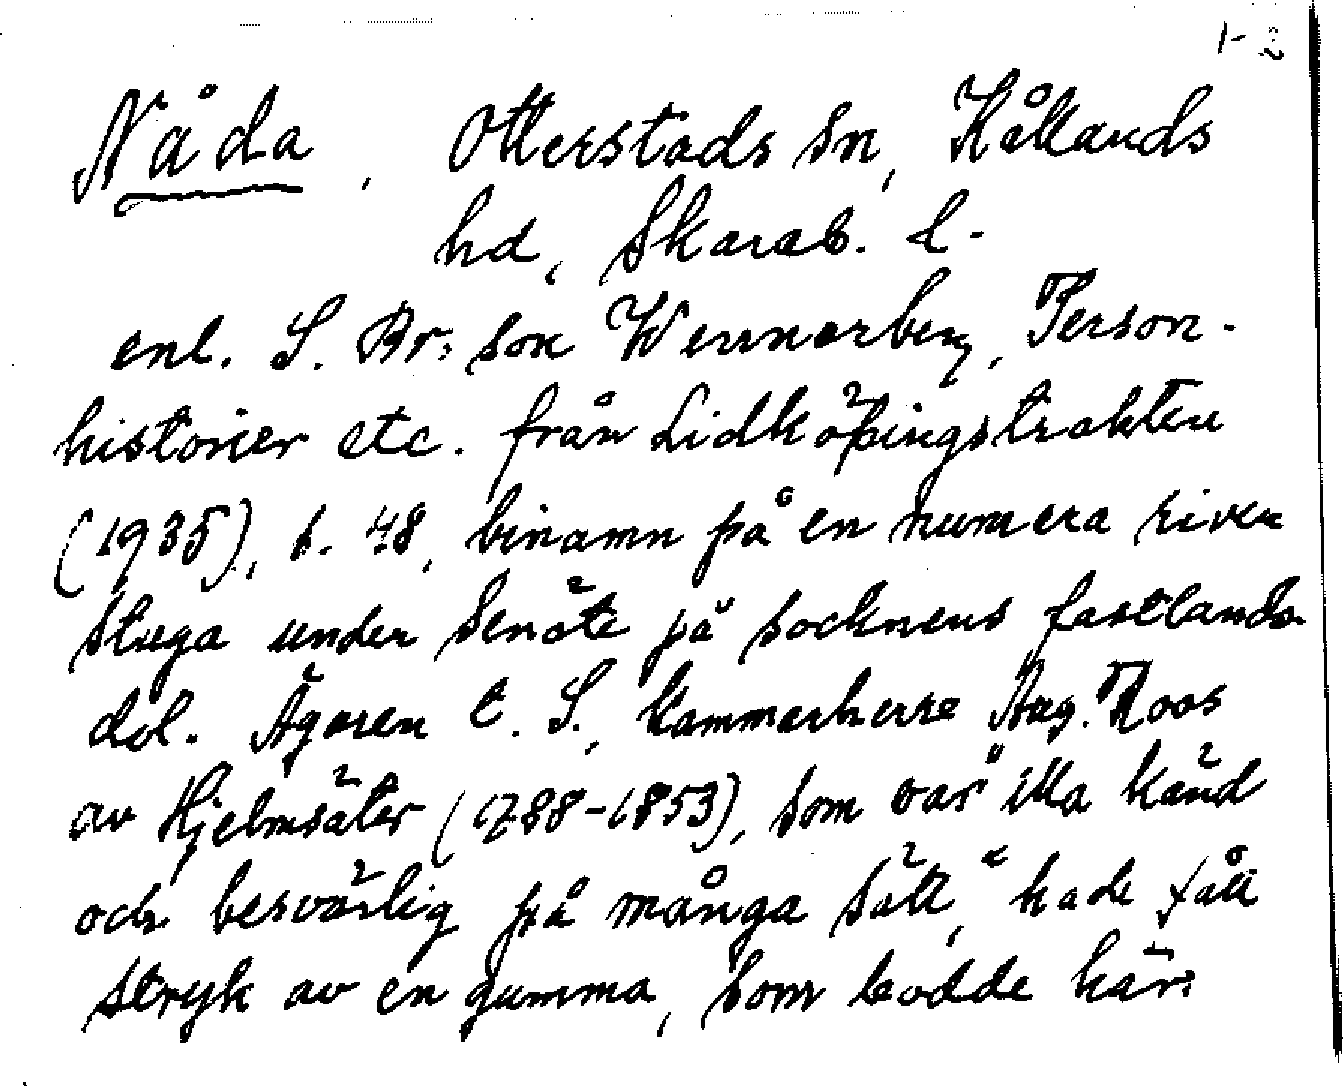 1-2
Nåda, Otterstads sn, Kållands
hd, Skarab. l.
enl. S. Br:son Wennerberg, Person-
historier etc. från Lidköpingstrakten
(1935), s. 48, binamn på en numera riven
stuga under Senäte på socknens fastlands-
del. Ägaren t. S., kammarherre Aug. Roos
av Hjelmsäter (1788-1853), som var "illa känd
och besvärlig på många sätt," hade fått
stryk av en gumma, som bodde här.